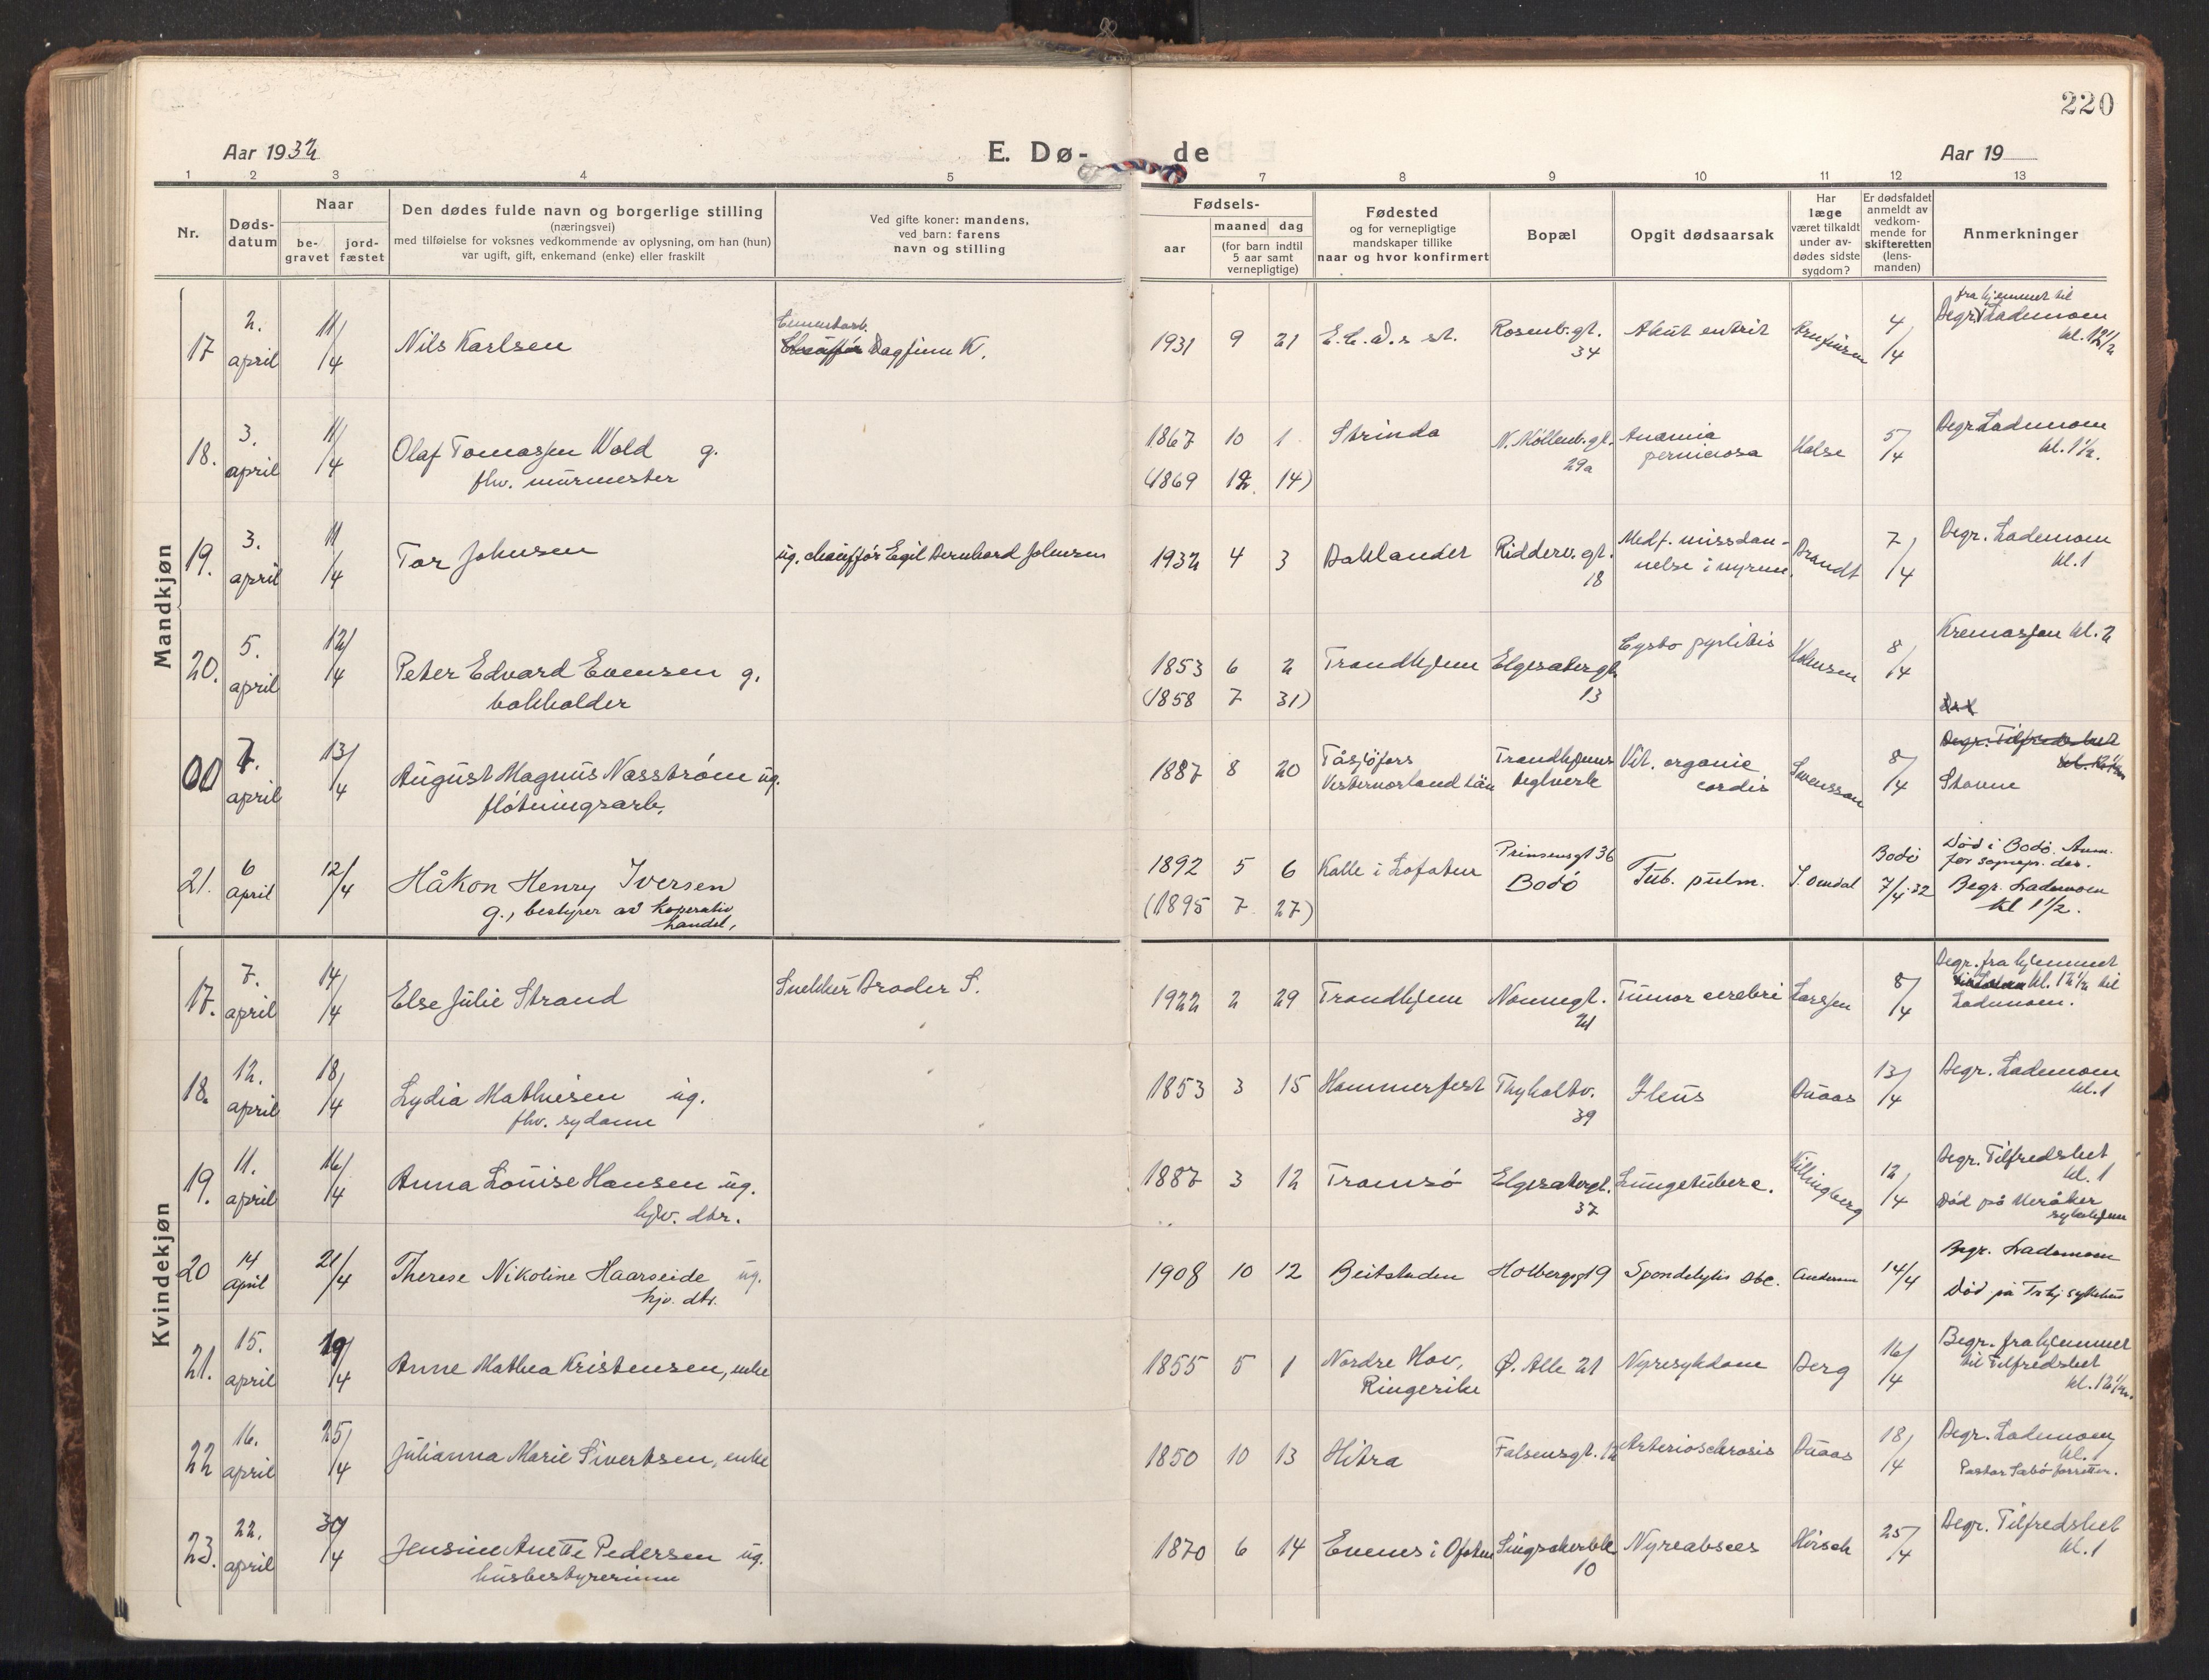 220
Aar 1932
E. Dø-
de
Aar 19
1 2 3 4 5 7 8 9 10 11 12 13
Nr.
Døds-
datum
Naar
be-
gravet
jord-
fæstet
Den dødes fulde navn og borgerlige stilling
(næringsvei)
med tilføielse for voksnes vedkommende av oplysning, om han (hun)
var ugift, gift, enkemand (enke) eller fraskilt
Ved gifte koner: mandens,
ved barn: farens
navn og stilling
Fødsels-
aar
maaned dag
(for barn indtil
5 aar samt
vernepligtige)
Fødested
og for vernepligtige
mandskaper tillike
naar og hvor konfirmert
Bopæl
Opgit dødsaarsak
Har
læge
været tilkaldt
under av-
dødes sidste
sygdom?
Er dødsfaldet
anmeldt av
vedkom-
mende for
skifteretten
(lens-
manden)
Anmerkninger
Mandkjøn
17 2. april 11/4 Nils Karlsen
Dagfinn K.
1931 9 21 E.C.D.s st. Rosenb.gt. 34 Akut entrit 4/4
fra hjemmet til
Begr. Lademoen
kl. 12½
18. 3. april 11/4 Olaf Tomassen Wold g.
fhv. murmester
1867 10 1 Strinda N. Möllenb.gt. 29a Anæmia perniciosa Halse 5/4
(1869 12 14)
Begr Lademoen
kl. 1½.
19. 3. april 11/4 Tor Johnsen
ug. chauffør Egil Bernhard Johnsen
1932 4 3 Bakklandet Ridderv.gt. 18 Medf. missdan-
nelse i nyrene. Brandt 7/4
Begr. Lademoen
kl. 1
20. 5. april 12/4 Peter Edvard Evensen g.
bokholder
1853 6 2 Trondhjem Elgesetergt. 13 Cysto pyelitis 8/4
(1858 7 31)
Kremasjon kl. 2
00 7. april 13/4 August Magnus Nasström ug.
fløtningsarb.
1887 8 20 Tåsjöfors
Vesternorland län Trondhjems
teglverk Vit. organic
cordis Svensson 8/4
Begr. Tilfredshet
Stavne
21. 6 april 12/4 Håkon Henry Iversen
g., bestyrer av koperativ
handel,
1892 5 6 Kalle i Lofoten Prinsensgt 36
Bodö Tub. pulm. Bodö
7/4.32
(1895 7 27)
Død i Bodö. Anm.
for sognepr. der.
Begr. Lademoen
kl 1½.
Kvindekjøn
17. 7. april 14/4 Else Julie Strand
Snekker Broder S.
1922 2 29 Trondhjem Nonnegt. 21 Tumor cerebri Larssen 8/4
Begr. fra hjemmet
kl. 12½ til
Lademoen.
18. 12. april 18/4 Lydia Mathiesen ug.
fhv. sydame
1853 3 15 Hammerfest Thyholtv. 39 Ileus Duaas 13/4
Begr. Lademoen
kl. 1
19. 11. april 16/4 Anna Louise Hansen ug.
hjv. dtr.
1887 3 12 Tromsö Elgesetergt. 37 Lungetuberc. Killingberg 12/4
Begr. Tilfredshet
kl. 1
Død på Meråker
sykehjem
20 14 april 21/4 Therese Nikoline Haarseide ug.
hjv. dtr.
1908 10 12 Beitstaden Holbergsgt 9 Spondylytis tbc. Andersen 14/4
Begr. Lademoen
Død på Trhj sykehus
21. 15. april 19/4 Anne Mathea Kristensen, enke
1855 5 1 Nordre Hov,
Ringerike Ø. Alle 21 Nyresykdom Berg 16/4
Begr. fra hjemmet
til Tilfredshet
kl. 12½.
22 16. april 25/4 Julianna Marie Sivertsen, enke
1850 10 13 Hitra Falsensgt. 12 Arteriosclerosis Duaas 18/4
Begr. Lademoen
kl. 1
Pastor Sæbö forretter.
23. 22. april 30/4 Jensine Anette Pedersen ug.
husbestyrerinne
1870 6 14 Evenes i Ofoten Singsakerbk. 10 Nyreabsces Hirsch 25/4
Begr. Tilfredshet
kl. 1